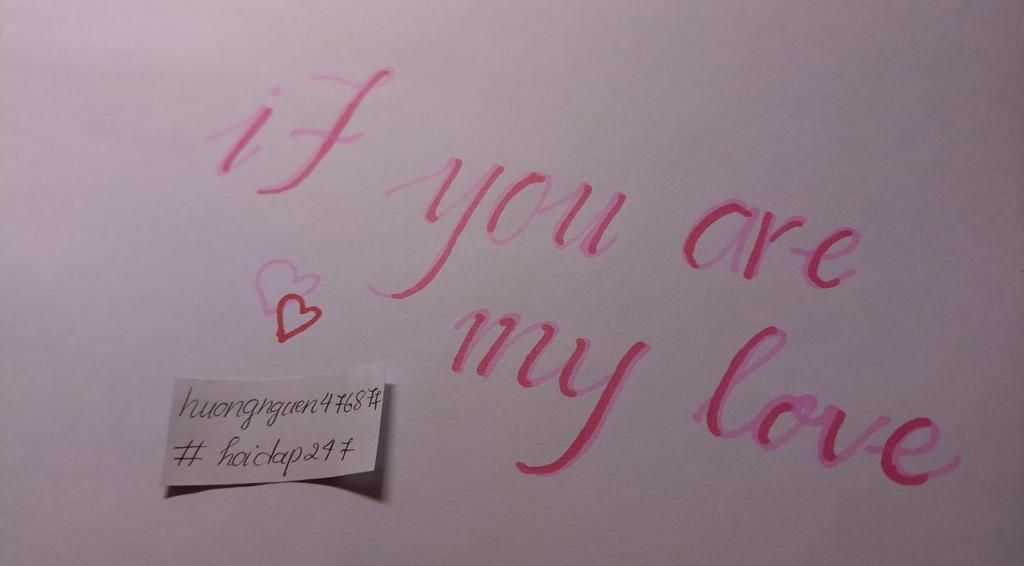 if you are
my love
huongnguen476877
# hoidap247